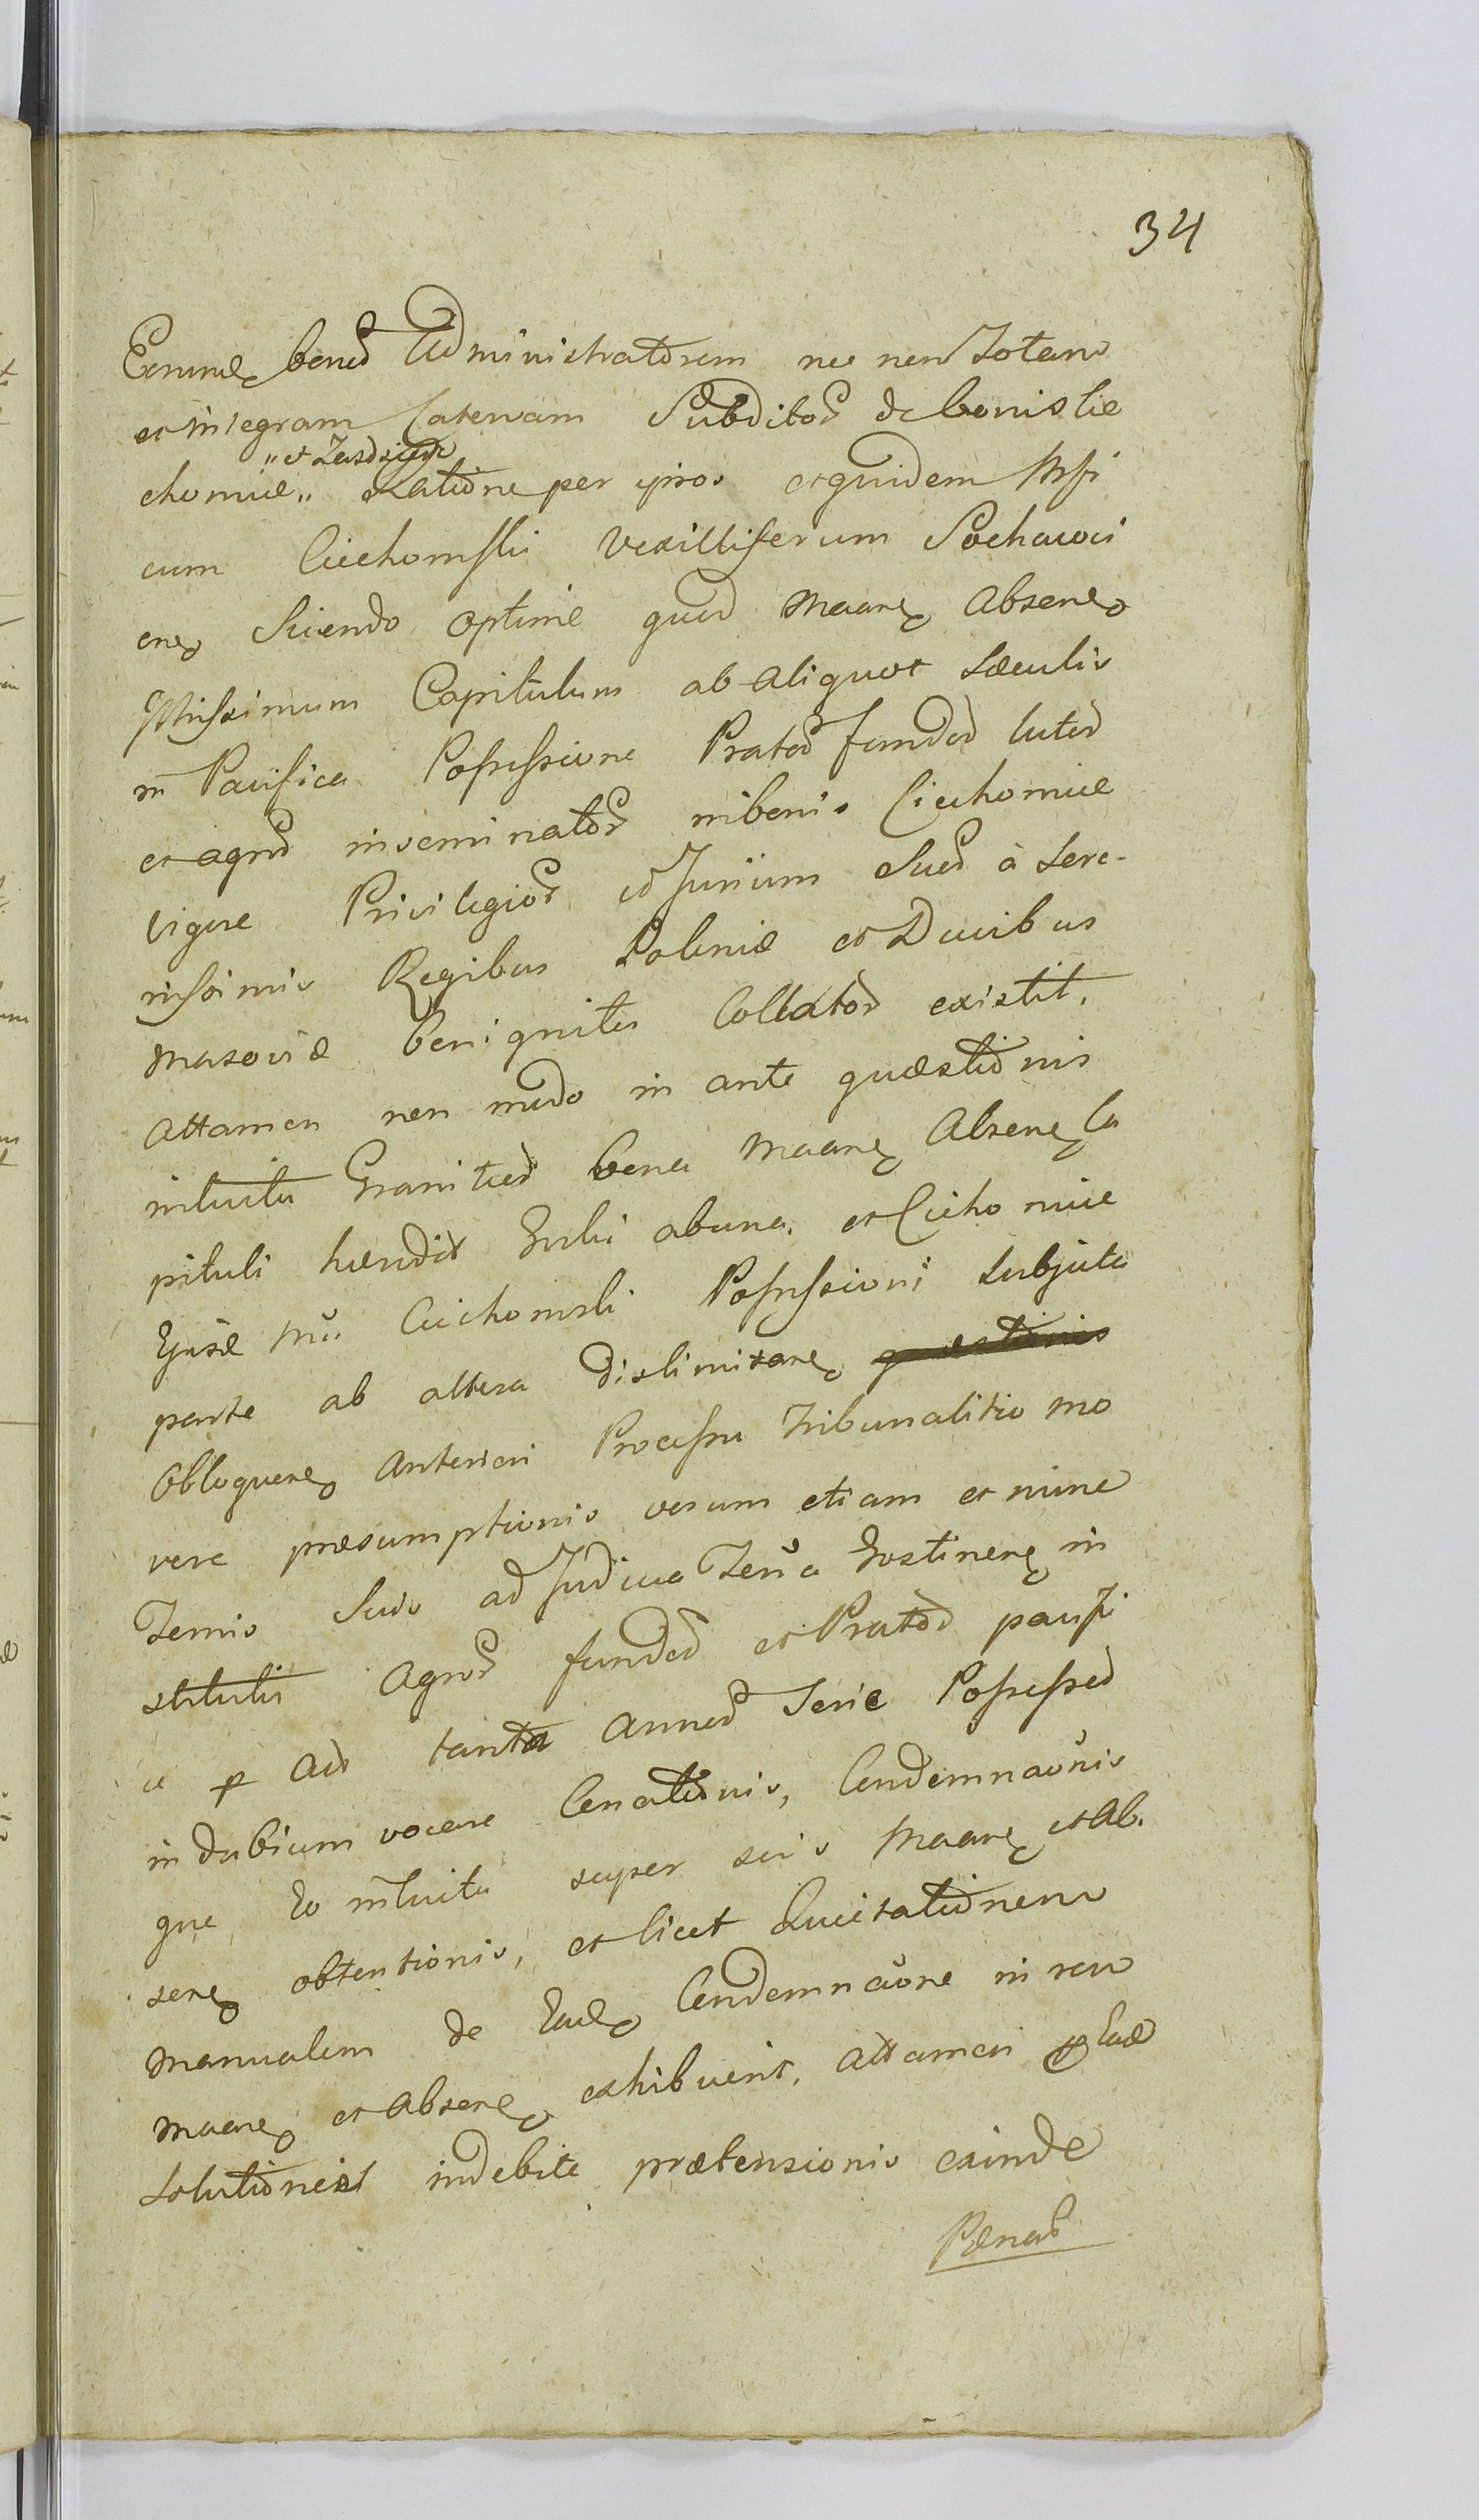 34
bonor Administratorem nec non Totam
et integram Catervam Subditor de bonis Cie
"et
chomice" Ratione per ipsos et quidem Mfi
cum Ciechomski Vexilliferum Sochacvi
en Sciendo optime quod Maan Absen
Capitulum ab aliquot Sæculis
in Pacifica Possessione Prator fundor lutor
et agror inseminator in bonis Ciechomice
vigore Privilegior et Jurium Suor à Sere-
nissimis Regibus Poloniæ et Ducibus
Masoviæ benigniter Collator existit.
Attamen non modo in ante quæstionis
intuitu Granitier bona Maan Absen Ca
pituli hæredit ab una. et Ciechomice
Mci Ciechomski Possessioni Subjecta
parte ab altera dislimitare quæstionis
Obloquen Anteriori Processu Tribunalitio mo
vere præsumptionis verum etiam et nunc
Temis Suis ad Judicia Terra Gostinen in
stitutis Agror fundor et Prator pacifi
ce p Ad tanta Annor Serie Possessor
in dubium vocare Conationis, Condemnaonis
que Eo intuitu super scis Maan et Ab.
sen obtentionis, et licet Quietationem
Manualem de Condemnaone in rem
Maan et Absen exhibuerit, Attamen p
Solutione indebite prætensionis exinde
Pænar